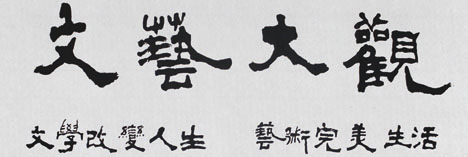 文藝大觀
文學改變人生 藝術完美生活